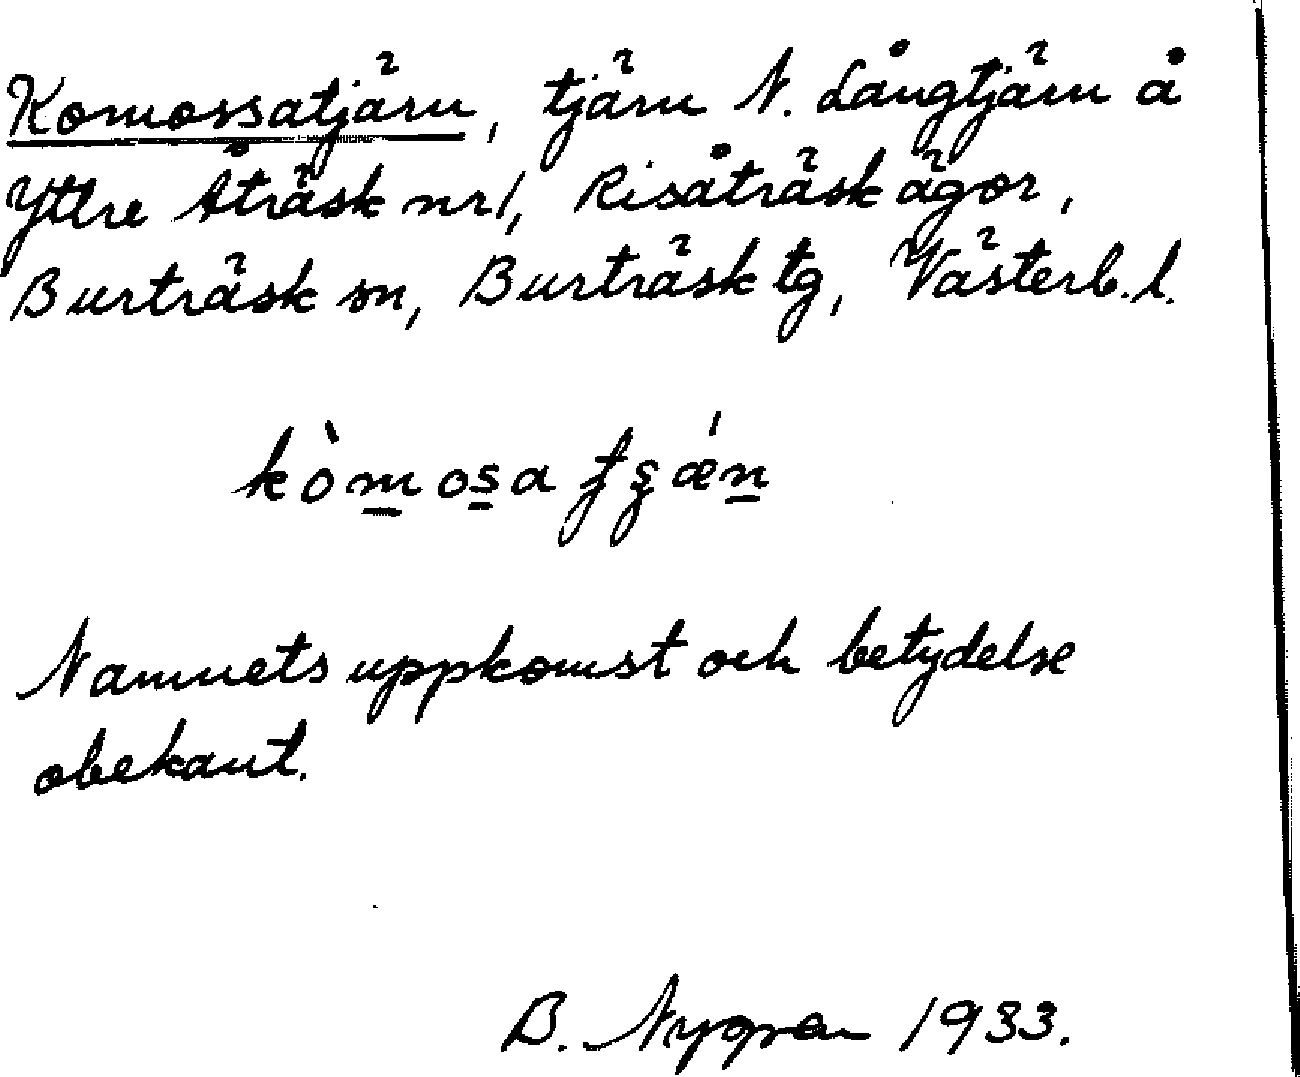 Komossatjärn, tjärn N. Långtjärn å
Yttre Åträsk nr 1, Risåträsk ägor,
Burträsk sn, Burträsk tg, Västerb. l.
kòmosa tʂǽn
Namnets uppkomst och betydelse
obekant.
B. Nygren 1933.